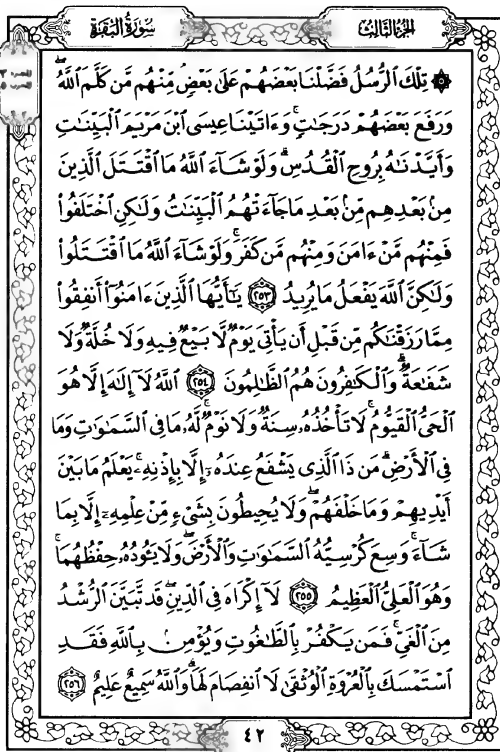 سُورَةُ البَقَرَةِ
الجزء الثالث
تِلْكَ ٱلرُّسُلُ فَضَّلْنَا بَعْضَهُمْ عَلَىٰ بَعْضٍ مِّنْهُم مَّن كَلَّمَ ٱللَّهُ
وَرَفَعَ بَعْضَهُمْ دَرَجَـٰتٍ وَءَاتَيْنَا عِيسَى ٱبْنَ مَرْيَمَ ٱلْبَيِّنَـٰتِ
وَأَيَّدْنَـٰهُ بِرُوحِ ٱلْقُدُسِ وَلَوْ شَآءَ ٱللَّهُ مَا ٱقْتَتَلَ ٱلَّذِينَ
مِنۢ بَعْدِهِم مِّنۢ بَعْدِ مَا جَآءَتْهُمُ ٱلْبَيِّنَـٰتُ وَلَـٰكِنِ ٱخْتَلَفُوا۟
فَمِنْهُم مَّنْ ءَامَنَ وَمِنْهُم مَّن كَفَرَ وَلَوْ شَآءَ ٱللَّهُ مَا ٱقْتَتَلُوا۟
وَلَـٰكِنَّ ٱللَّهَ يَفْعَلُ مَا يُرِيدُ ٢٥٣ يَـٰٓأَيُّهَا ٱلَّذِينَ ءَامَنُوٓا۟ أَنفِقُوا۟
مِمَّا رَزَقْنَـٰكُم مِّن قَبْلِ أَن يَأْتِىَ يَوْمٌ لَّا بَيْعٌ فِيهِ وَلَا خُلَّةٌ وَلَا
شَفَـٰعَةٌ وَٱلْكَـٰفِرُونَ هُمُ ٱلظَّـٰلِمُونَ ٢٥٤ ٱللَّهُ لَآ إِلَـٰهَ إِلَّا هُوَ
ٱلْحَىُّ ٱلْقَيُّومُ لَا تَأْخُذُهُۥ سِنَةٌ وَلَا نَوْمٌ لَّهُۥ مَا فِى ٱلسَّمَـٰوَٰتِ وَمَا
فِى ٱلْأَرْضِ مَن ذَا ٱلَّذِى يَشْفَعُ عِندَهُۥٓ إِلَّا بِإِذْنِهِۦ يَعْلَمُ مَا بَيْنَ
أَيْدِيهِمْ وَمَا خَلْفَهُمْ وَلَا يُحِيطُونَ بِشَىْءٍ مِّنْ عِلْمِهِۦٓ إِلَّا بِمَا
شَآءَ وَسِعَ كُرْسِيُّهُ ٱلسَّمَـٰوَٰتِ وَٱلْأَرْضَ وَلَا يَـُٔودُهُۥ حِفْظُهُمَا
وَهُوَ ٱلْعَلِىُّ ٱلْعَظِيمُ ٢٥٥ لَآ إِكْرَاهَ فِى ٱلدِّينِ قَد تَّبَيَّنَ ٱلرُّشْدُ
مِنَ ٱلْغَىِّ فَمَن يَكْفُرْ بِٱلطَّـٰغُوتِ وَيُؤْمِنۢ بِٱللَّهِ فَقَدِ
ٱسْتَمْسَكَ بِٱلْعُرْوَةِ ٱلْوُثْقَىٰ لَا ٱنفِصَامَ لَهَا وَٱللَّهُ سَمِيعٌ عَلِيمٌ ٢٥٦
٤٢